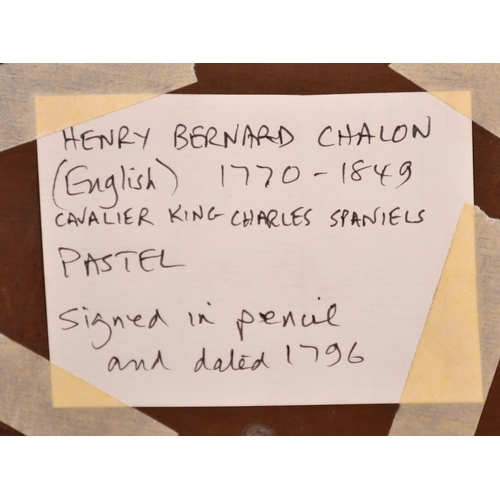 HENRY BERNARD CHALON
(English) 1770-1849
CAVALIER KING CHARLES SPANIELS
PASTEL
signed in pencil
and dated 1796